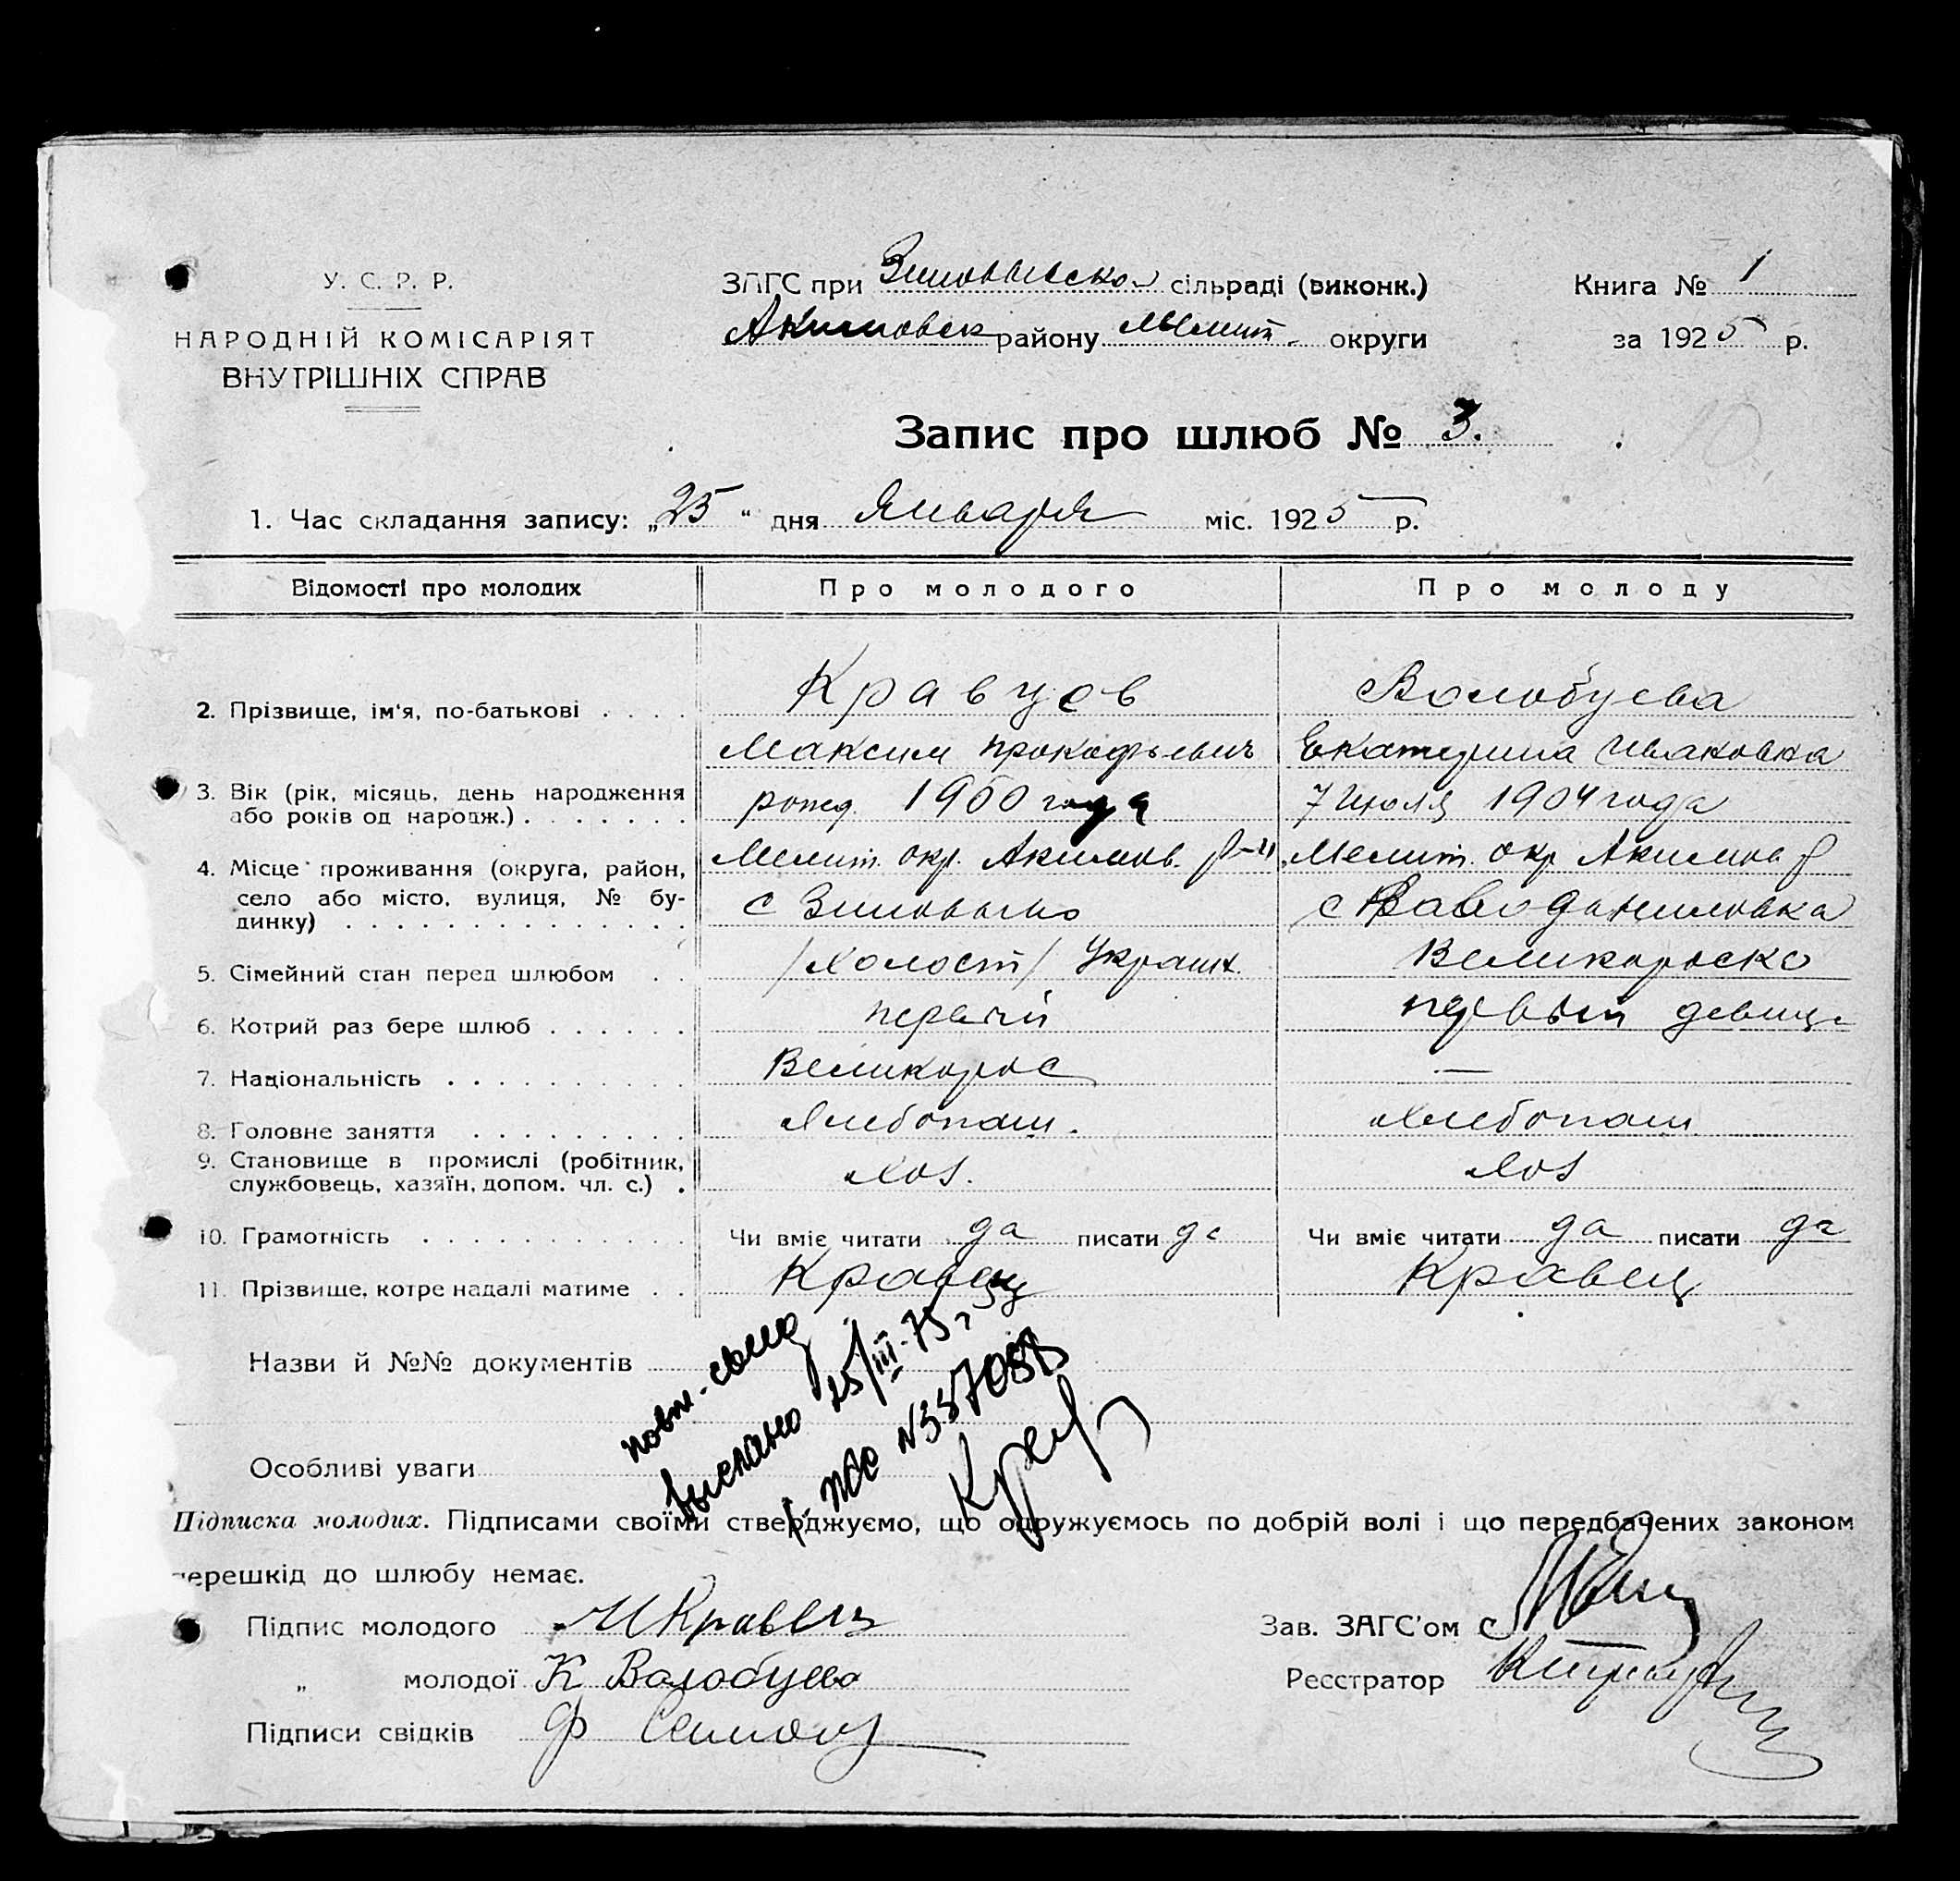 У. С. Р. Р.
НАРОДНІЙ КОМІСАРІЯТ
ВНУТРІШНІХ СПРАВ
ЗАГС при сільраді (виконк.)
Акимовск району Мелит. округи
Книга № 1
за 1925 р.
Запис про шлюб № 3.
1. Час складання запису: „25“ дня Января міс. 1925 р.
Відомості про молодих Про молодого Про молоду
2. Прізвище, ім'я, по-батькові . . . . Кравцов Волобуева
Максим Прокофьевич Екатерина
3. Вік (рік, місяць, день народження рожд. 1900 года 7 Июля 1904 года
або років од народж.) . . . . . . .
4. Місце проживання (округа, район, Мелит. окр. Акимов. р-н Мелит. окр Акимов р
село або місто, вулиця, № бу- с с
динку) . . . . . . . . . . . . . .
5. Сімейний стан перед шлюбом . . /холост/ Украин. Великоросска
6. Котрий раз бере шлюб . . . . . . первый первый девица
7. Національність . . . . . . . . . . Великорос —
8. Головне заняття . . . . . . . . . Хлебопаш. Хлебопаш
9. Становище в промислі (робітник, Хоз. Хоз
службовець, хазяїн, допом. чл. с.) .
10. Грамотність . . . . . . . . . . . Чи вміє читати да писати да Чи вміє читати да писати да
11. Прізвище, котре надалі матиме . . Кравец Кравец
Назви й №№ документів
повт. свид
выслано 25/III-75г
№387087
Особливі уваги
Підписка молодих. Підписами своїми стверджуємо, що одружуємось по добрій волі і що передбачених законом
перешкід до шлюбу немає.
Підпис молодого МКравец
„ молодої К Волобуева
Підписи свідків Ф
Зав. ЗАГС'ом
Реєстратор